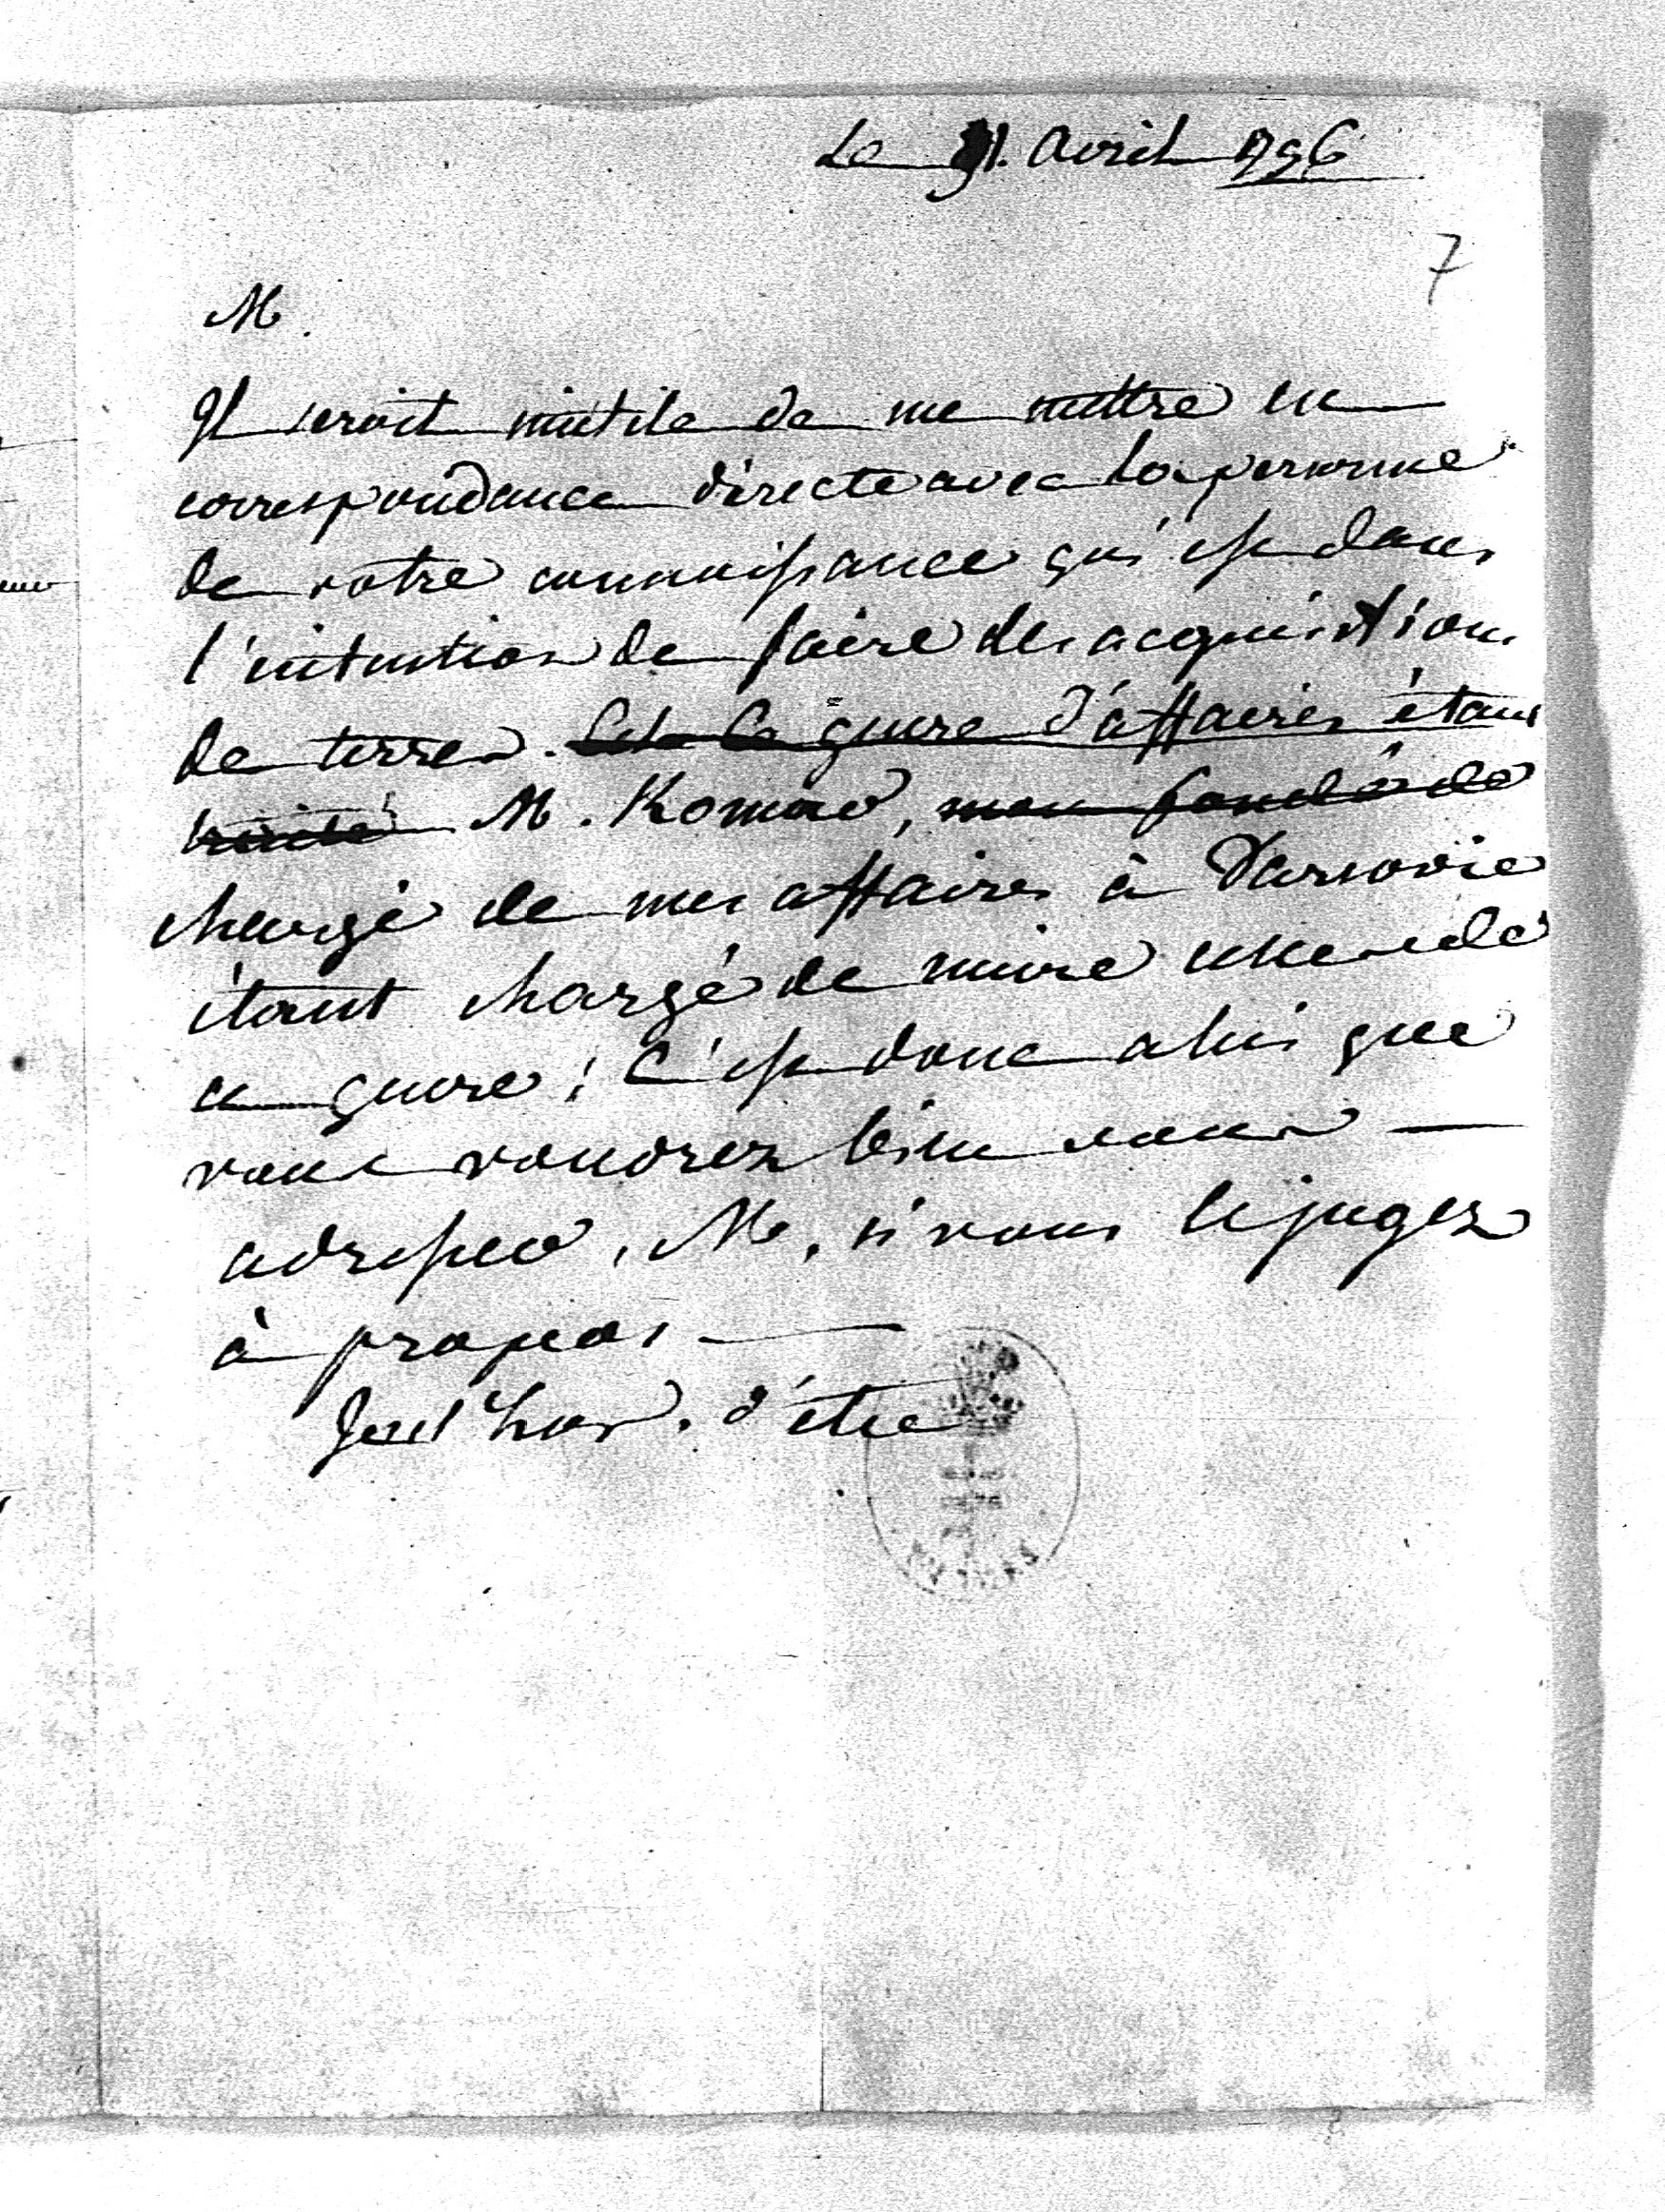 Le 31. Avril 1796
7
M.
Il seroit inutile de me mettre en
correspondance directe avec la personne
de votre connoissance qui est dans
l'intention de faire des acquisitions
de terres. Ce genre d'affaires étant
traité M. Komar, mon fondé de
chargé de mes affaires à Varsovie
étant chargé de suivre celles de
ce genre; C'est donc a lui que
vous voudrez bien vous
adresser, M, si vous le jugez
à propos
J'ai l'hon. d'être